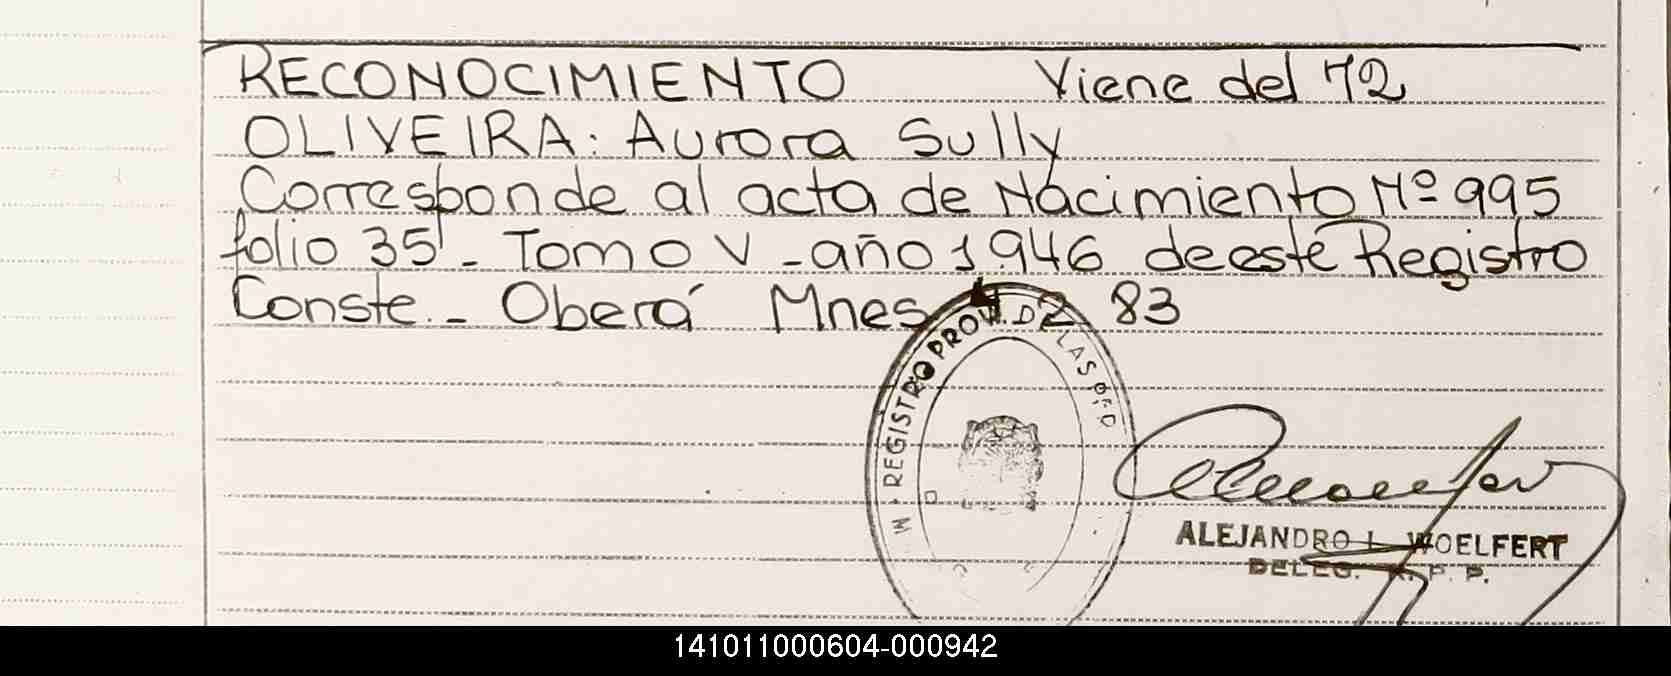 RECONOCIMIENTO Viene del 72
OLIVEIRA: Aurora Sully
Corresponde al acta de Nacimiento Nº 995
folio 35 - Tomo V - año 1.946 de este Registro
Conste. - Oberá Mnes 2 83
REGISTRO PROV. D LAS
ALEJANDRO L. WOELFERT
DELEG. R. P. P.
141011000604-000942